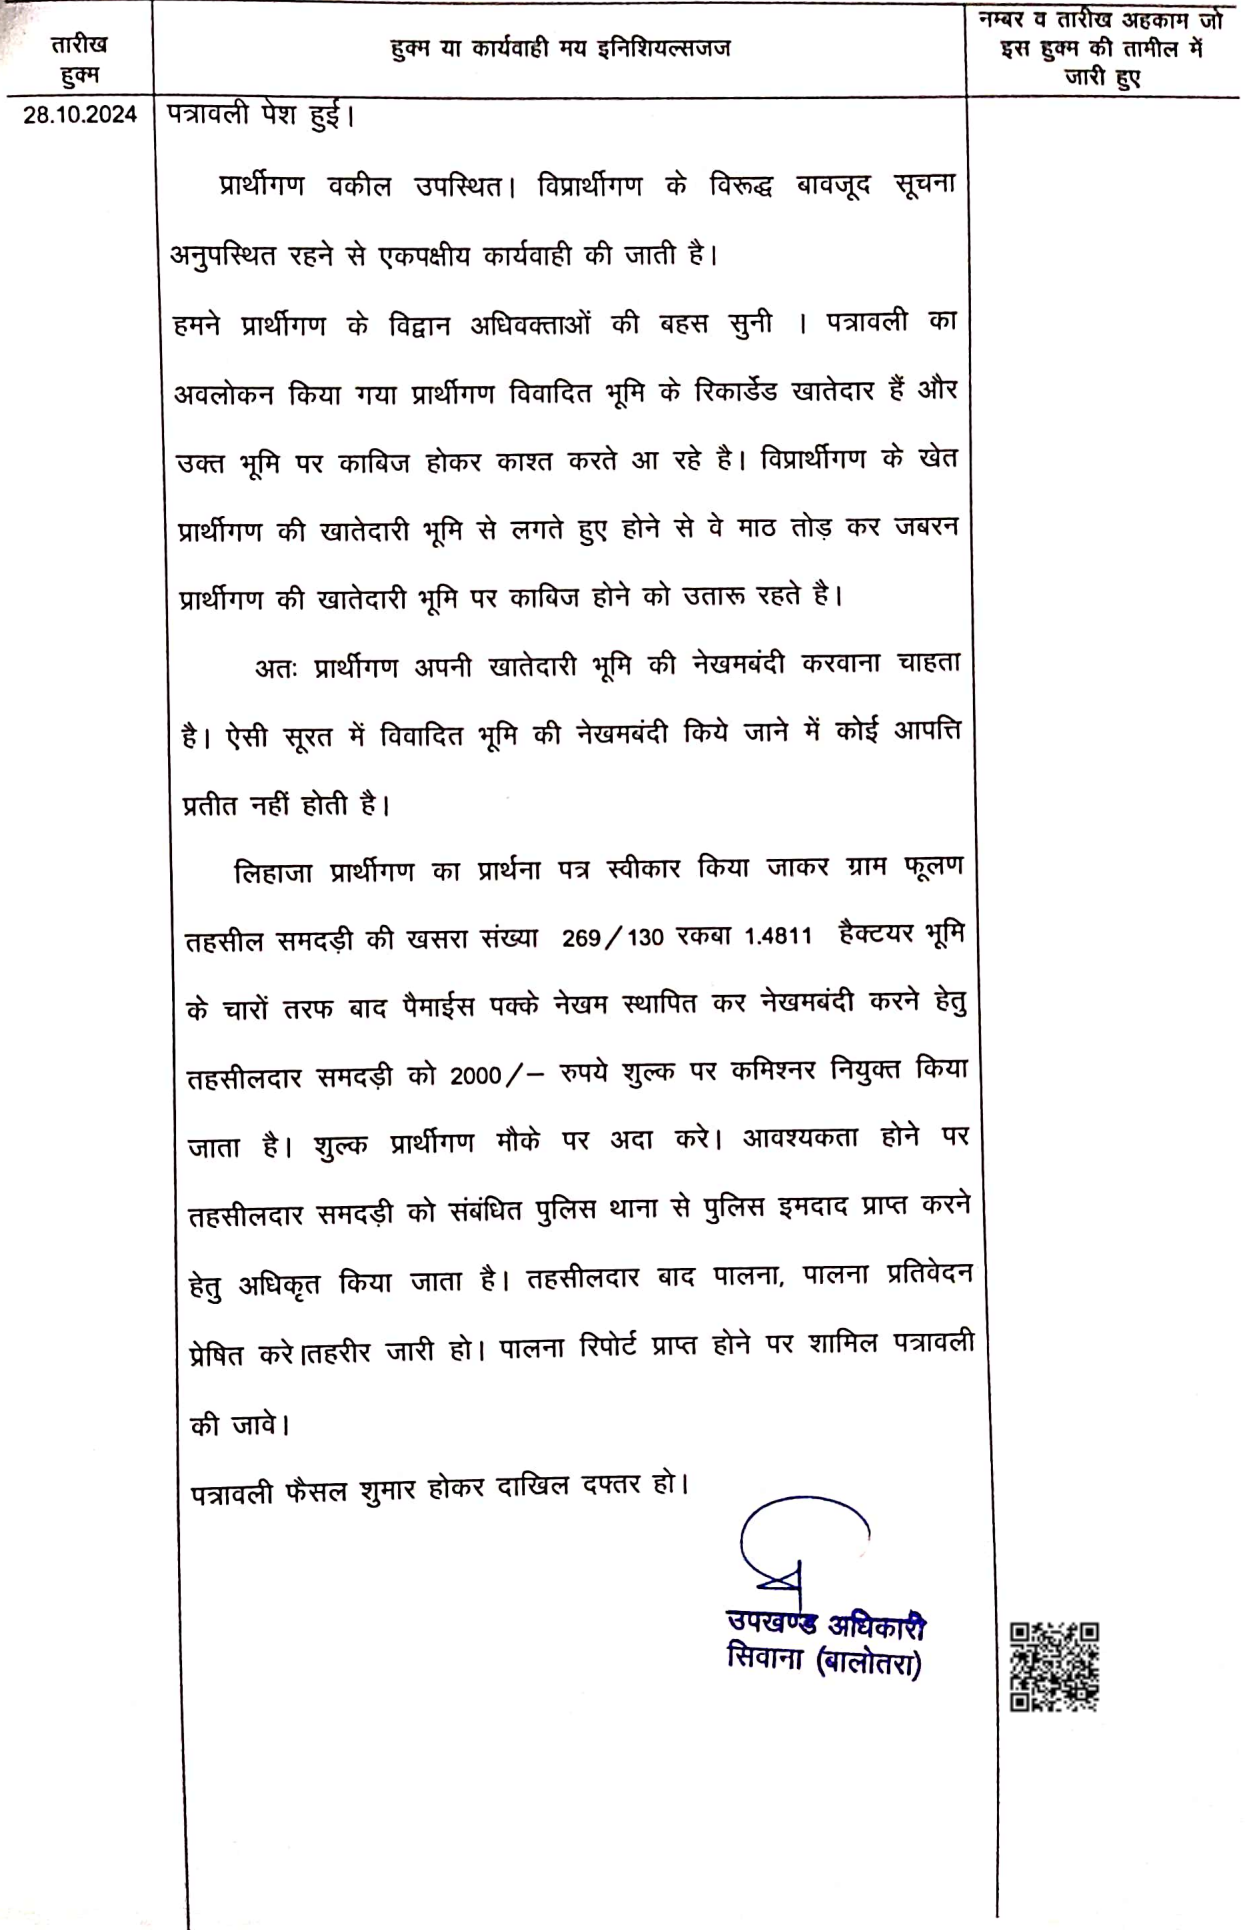 तारीख
हुक्म
हुक्म या कार्यवाही मय इनिशियल्सजज
नम्बर व तारीख अहकाम जो
इस हुक्म की तामील में
जारी हुए
28.10.2024
पत्रावली पेश हुई।
प्रार्थीगण वकील उपस्थित। विप्रार्थीगण के विरूद्ध बावजूद सूचना
अनुपस्थित रहने से एकपक्षीय कार्यवाही की जाती है।
हमने प्रार्थीगण के विद्वान अधिवक्ताओं की बहस सुनी । पत्रावली का
अवलोकन किया गया प्रार्थीगण विवादित भूमि के रिकार्डेड खातेदार हैं और
उक्त भूमि पर काबिज होकर काश्त करते आ रहे है। विप्रार्थीगण के खेत
प्रार्थीगण की खातेदारी भूमि से लगते हुए होने से वे माठ तोड़ कर जबरन
प्रार्थीगण की खातेदारी भूमि पर काबिज होने को उतारू रहते है।
अतः प्रार्थीगण अपनी खातेदारी भूमि की नेखमबंदी करवाना चाहता
है। ऐसी सूरत में विवादित भूमि की नेखमबंदी किये जाने में कोई आपत्ति
प्रतीत नहीं होती है।
लिहाजा प्रार्थीगण का प्रार्थना पत्र स्वीकार किया जाकर ग्राम फूलण
तहसील समदड़ी की खसरा संख्या 269/130 रकबा 1.4811 हैक्टयर भूमि
के चारों तरफ बाद पैमाईस पक्के नेखम स्थापित कर नेखमबंदी करने हेतु
तहसीलदार समदड़ी को 2000/– रुपये शुल्क पर कमिश्नर नियुक्त किया
जाता है। शुल्क प्रार्थीगण मौके पर अदा करे। आवश्यकता होने पर
तहसीलदार समदड़ी को संबंधित पुलिस थाना से पुलिस इमदाद प्राप्त करने
हेतु अधिकृत किया जाता है। तहसीलदार बाद पालना, पालना प्रतिवेदन
प्रेषित करे।तहरीर जारी हो। पालना रिपोर्ट प्राप्त होने पर शामिल पत्रावली
की जावे।
पत्रावली फैसल शुमार होकर दाखिल दफ्तर हो।
उपखण्ड अधिकारी
सिवाना (बालोतरा)